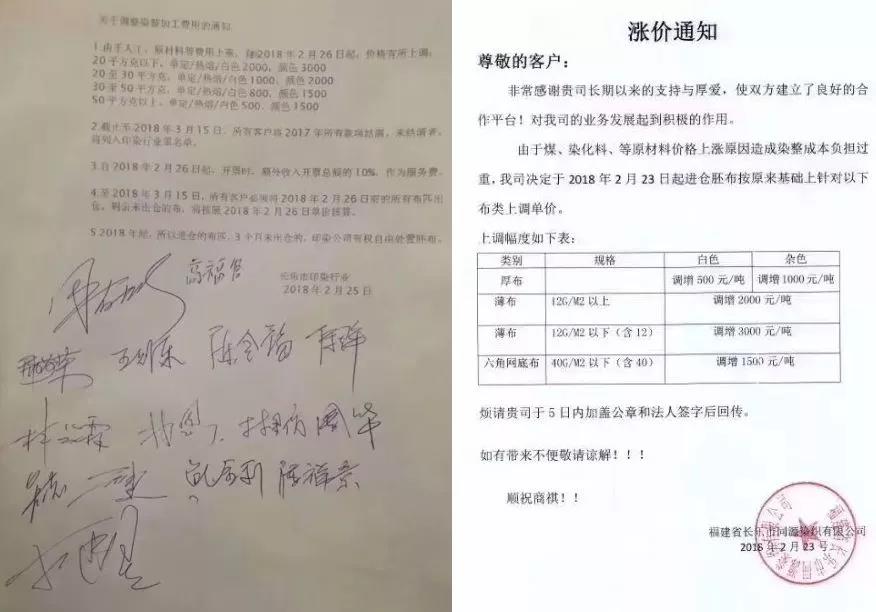 关于调整染整加工费用的通知
1.由于人工、原材料等费用上涨，自2018年2月26日起，价格有所上调：
20平方克以下，单定/热熔/白色2000，颜色3000
20至30平方克，单定/热熔/白色1000，颜色2000
30至50平方克，单定/热熔/白色800，颜色1500
50平方克以上，单定/热熔/白色500，颜色1500
2.截止至2018年3月15日，所有客户将2017年所有款项结清，未结清者，
将列入印染行业黑名单。
3.自2018年2月26日起，开票时，额外收入开票总额的10%，作为服务费。
4.至2018年3月15日，所有客户必须将2018年2月26日前的所有布匹出
仓，剩余未出仓的布，将按照2018年2月26日单价结算。
5.2018年始，所以进仓的布匹，3个月未出仓的，印染公司有权自由处置胚布。
长乐市印染行业
2018年2月25日
涨价通知
尊敬的客户：
非常感谢贵司长期以来的支持与厚爱，使双方建立了良好的合
作平台！对我司的业务发展起到积极的作用。
由于煤、染化料、等原材料价格上涨原因造成染整成本负担过
重，我司决定于2018年2月23日起进仓胚布按原来基础上针对以下
布类上调单价。
上调幅度如下表：
类别 规格 白色 杂色
厚布 调增500元/吨 调增1000元/吨
薄布 12G/M2以上 调增2000元/吨
薄布 12G/M2以下（含12） 调增3000元/吨
六角网底布 40G/M2以下（含40） 调增1500元/吨
烦请贵司于5日内加盖公章和法人签字后回传。
如有带来不便敬请谅解！！！
顺祝商祺！！
福建省长乐市同源染织有限公司
2018年2月23号